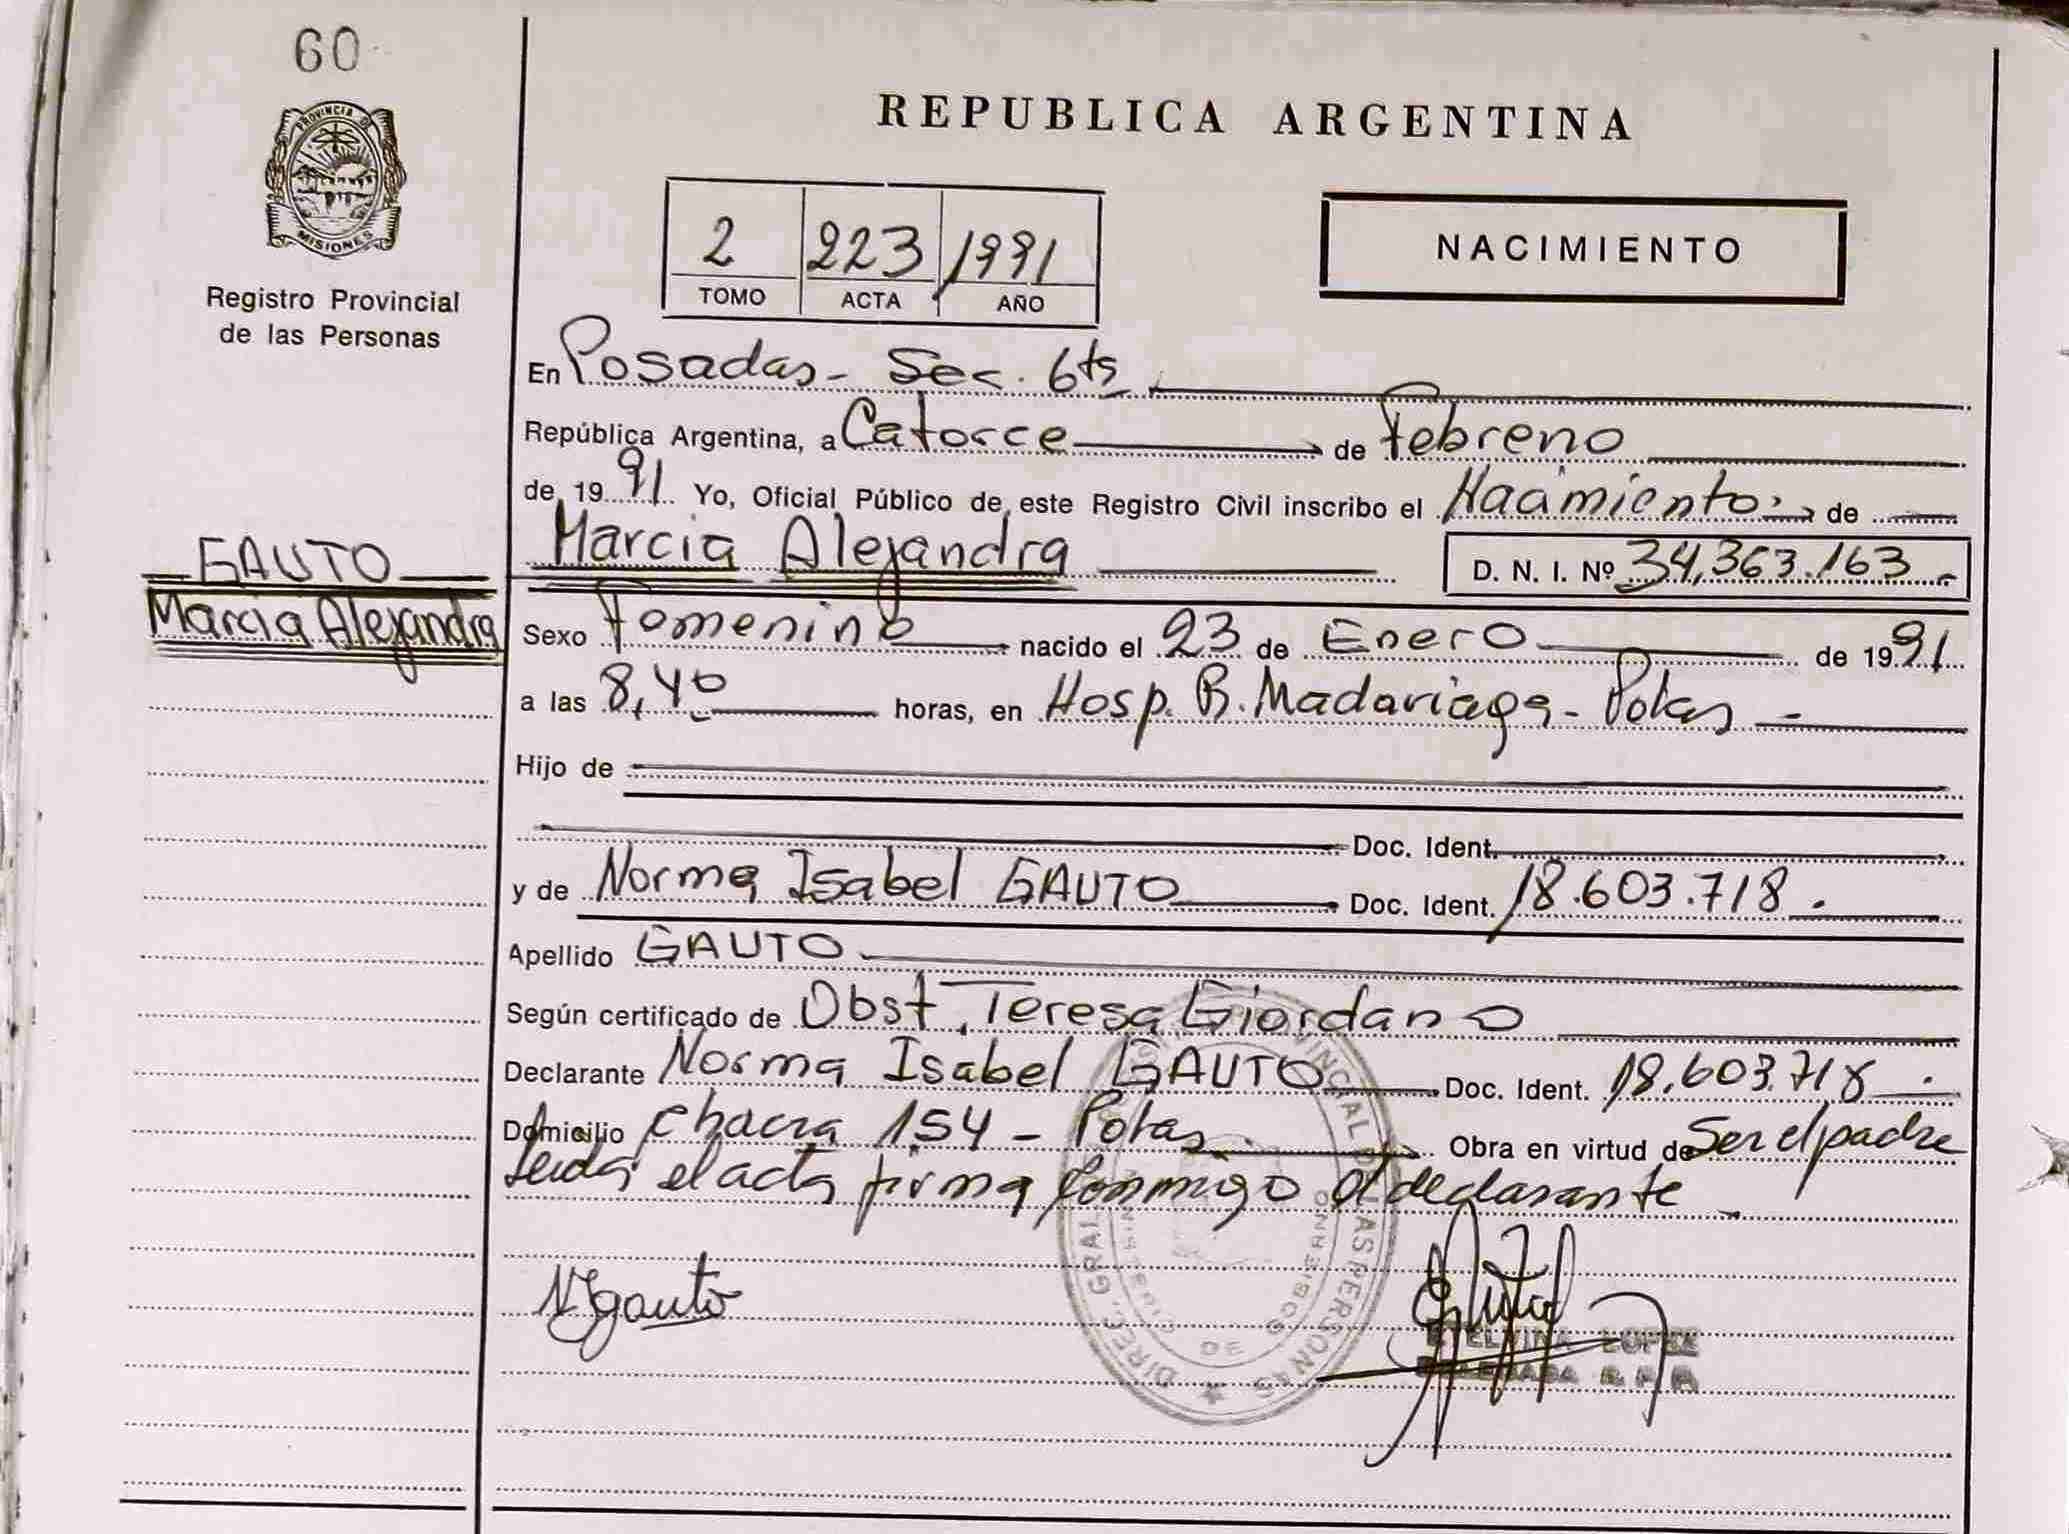 60
PROVINCIA DE
MISIONES
Registro Provincial
de las Personas
REPUBLICA ARGENTINA
2 223 1991
TOMO ACTA AÑO
NACIMIENTO
En Posadas - Sec. 6ta
República Argentina, a Catorce de Febrero
de 1991 Yo, Oficial Público de este Registro Civil inscribo el Nacimiento de
GAUTO
Marcia Alejandra
Marcia Alejandra D. N. I. Nº 34,363.163.-
Sexo Femenino nacido el 23 de Enero de 1991
a las 8,40 horas, en Hosp. R. Madariaga - Pdas -
Hijo de
Doc. Ident.
y de Norma Isabel GAUTO Doc. Ident. 18.603.718.
Apellido GAUTO
Según certificado de Obst. Teresa Giordano
Declarante Norma Isabel GAUTO Doc. Ident. 18.603.718.
Domicilio chacra 154 - Pdas. Obra en virtud de Ser el padre
leida el acta firma conmigo el declarante
NIgauto
DIREC. GRAL. PROVINCIAL DE LAS PERSONAS
MINISTERIO DE GOBIERNO
ELVINA LOPEZ
DELEGADA R. P. P.